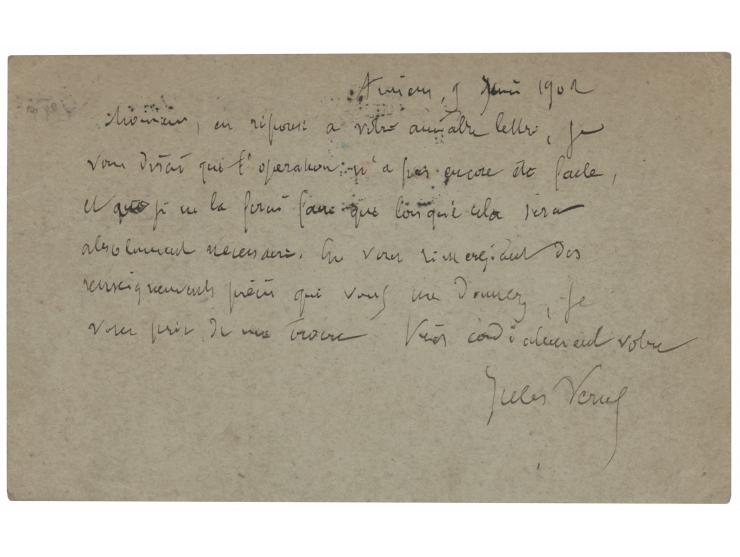 Amiens, 9 juin 1902
Monsieur, en réponse à votre aimable lettre, je
vous dirai que l'opération n'a pas encore été faite,
et que je ne la ferai faire que lorsque cela sera
absolument nécessaire. En vous remerciant des
renseignements précis que vous me donnez, je
vous prie de me croire Très cordialement votre
Jules Verne